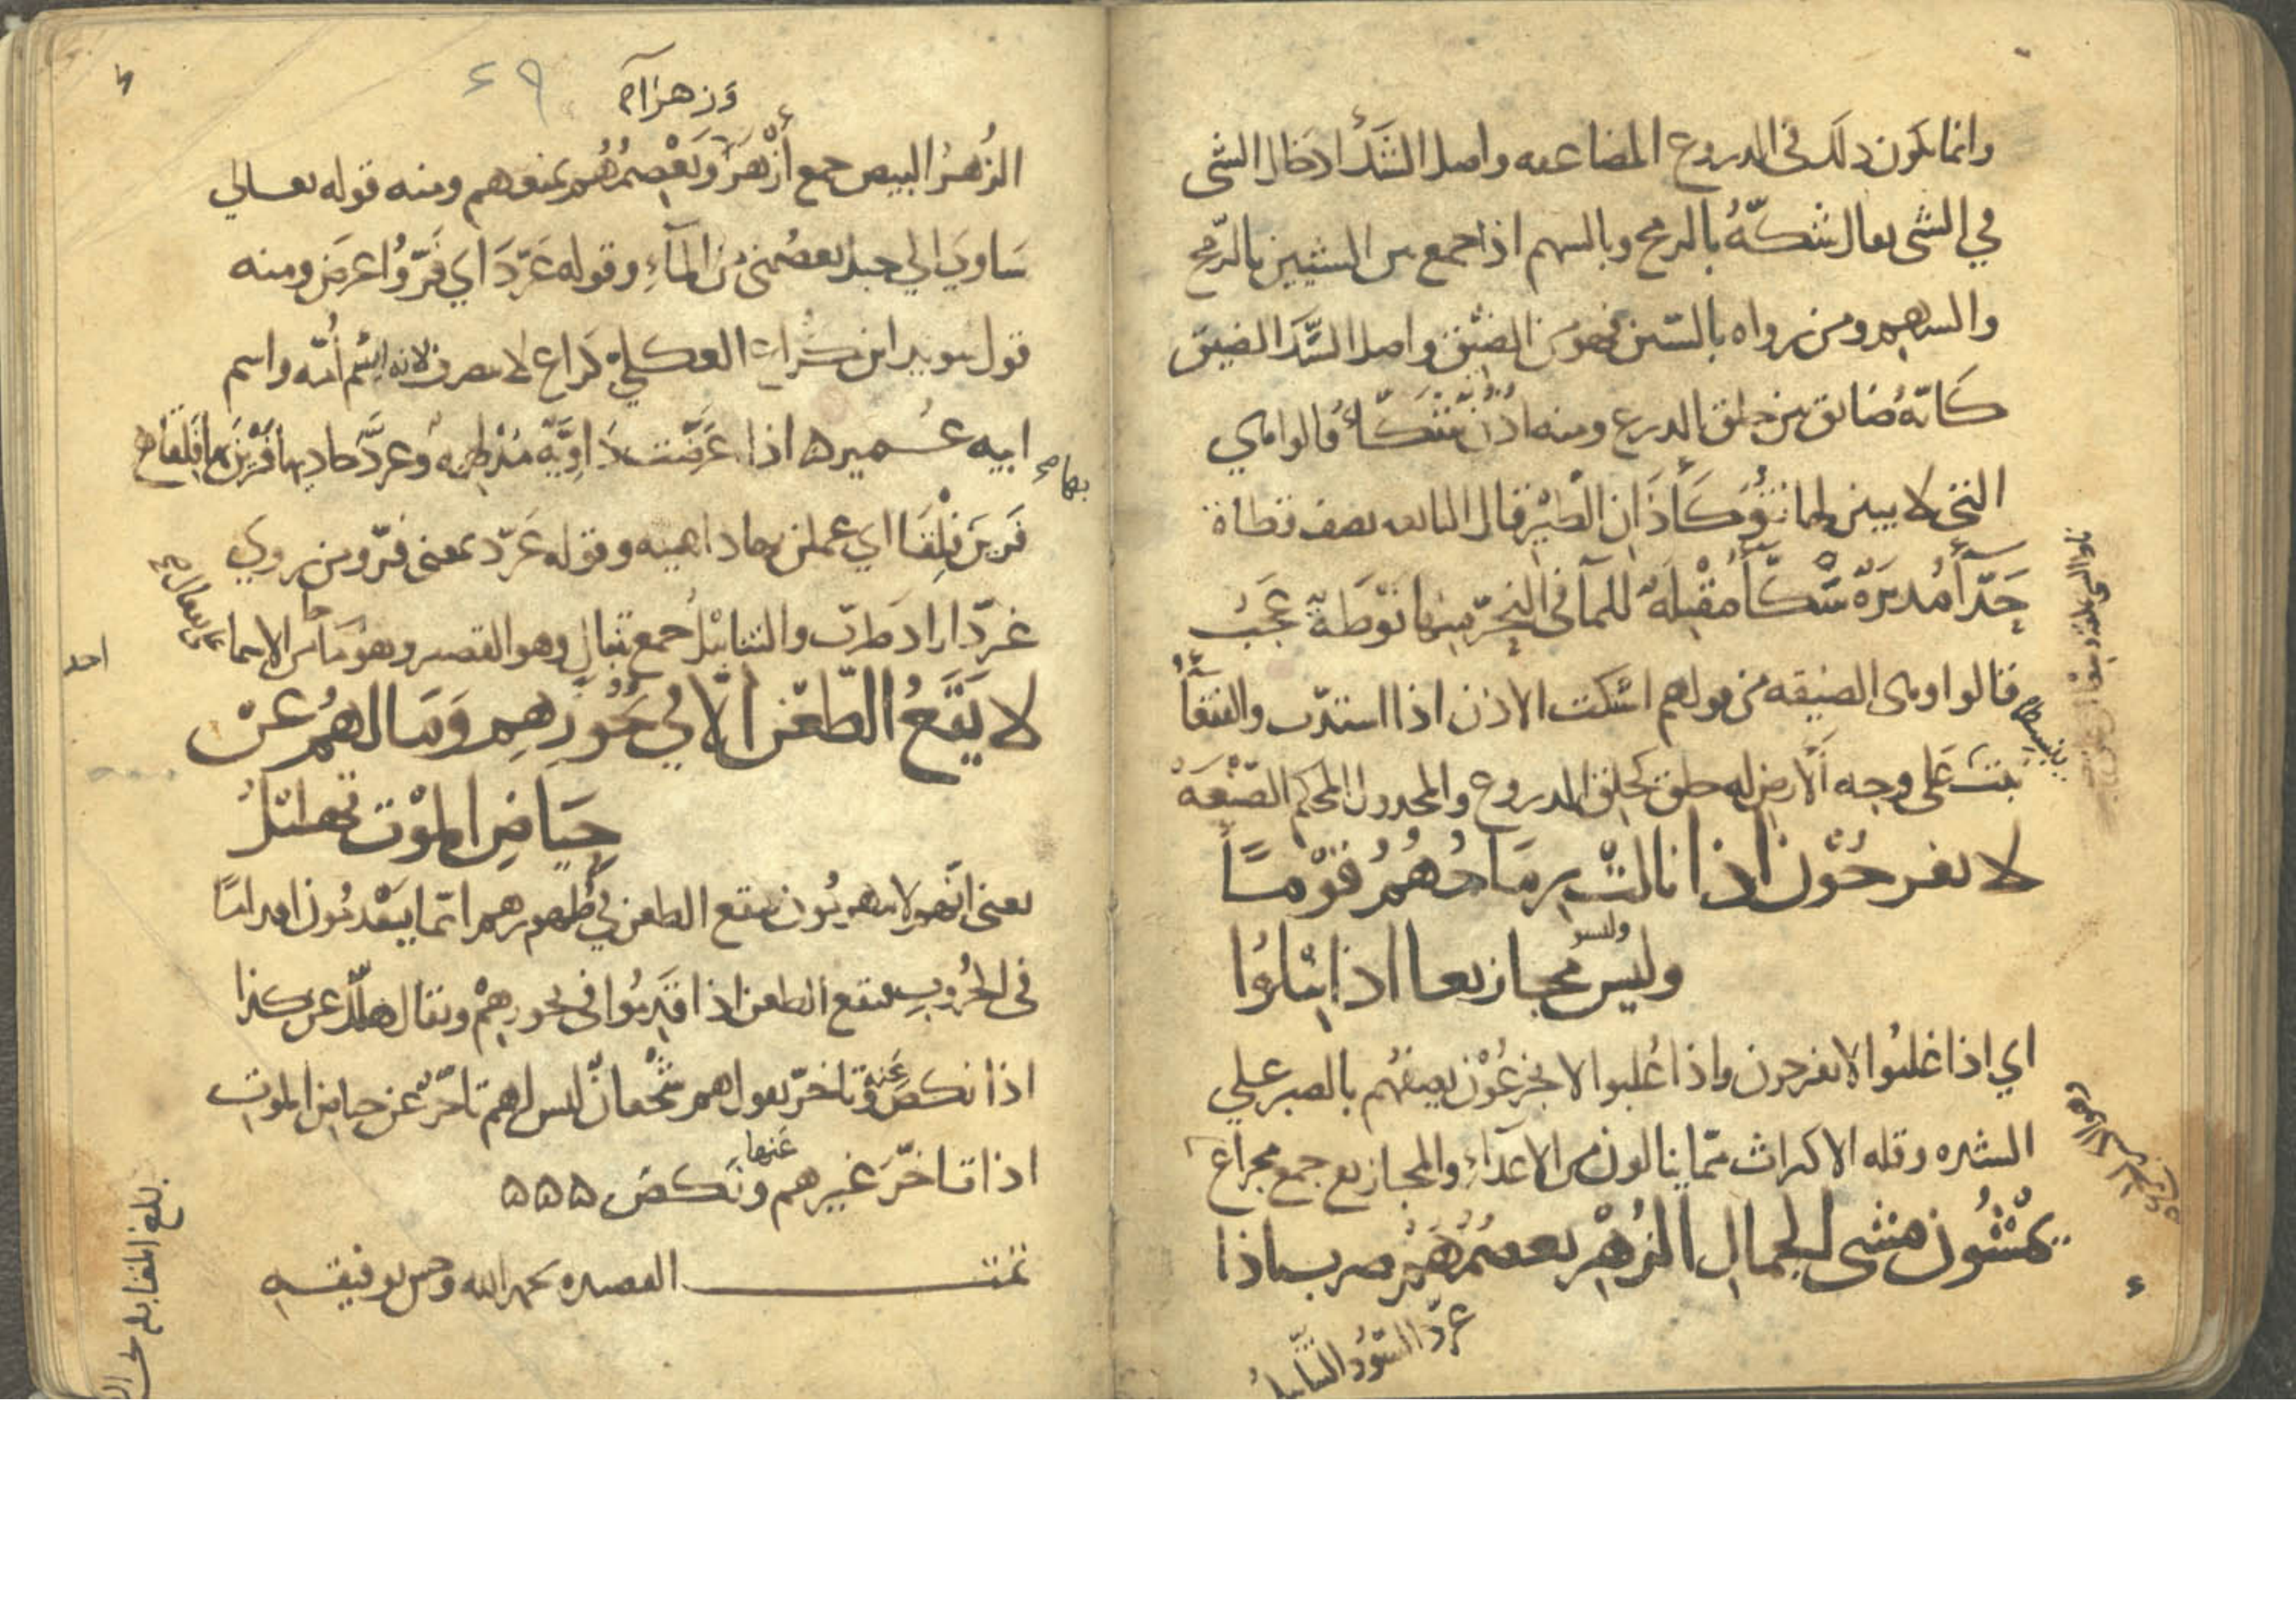 وانما يكون ذلك في الدروع المضاعفه واصل الشك ادخال الشي
في الشي يقال شكّهُ بالرمح وبالسهم اذا جمع بين الشيين بالرمح
والسهم ومن رواه بالسين فهو من الضيق واصل السكك الضيق
كانّهُ ضايق بين حلق الدرع ومنه اذن سكّاءُ قالوا هي
التي لا يبين لها نُتُوٌّ كآذان الطير قال النابغه يصف قطاة
حَذّآءُ مُدبرَةً سَكّآءُ مُقْبِلَةً للمآ في النحر منها نَوْطَةٌ عَجَبُ
قالوا وهي الضيقه من قولهم استكت الاذن اذا استدّت والقفعآءُ
نبت على وجه الارض له حلق كحلق الدروع والمجدول المحكم الصّنْعَهْ
لا يفرحُوْن اذا نالتْ رماحُهُمُ قَوْمًا
وليسُوا
وليسُ مجازيعا اذا نِيْلوُا
اي اذا غلبُوا لا يفرحون واذا غُلبوا لا يجزعُوْن يصفُهم بالصبر على
الشده وقله الاكتراث ممّا ينالون من الاعدآءِ والمجازيع جمع مجزاع
يمشُون مشي الجمال الزُهْرِ يعصمُهُمْ ضرب اذا
عرّدَ السّودُ التنابيلُ
وزهرآء
الزُهرُ البيض جمع أزْهَر ويَعْصمُهُم يمنعهم ومنه قوله تعالى
سَاوي الي جبل يعصمُني من المآءِ وقوله عَرّدَ اي فَرّ واعرضَ ومنه
قول سويد ابن كُراع العكلي كراع لا ينصرف لانه اسْم أُمّه واسم
ابيه عُمير اذا عَرَضت دَاوِيّةٌ مُدْلهِمّهٌ وعرّدَ حاديها فَرَيْنَ بها فِلْقَا
فَريْنَ فِلْقَا اي عملن بها داهيه وقوله عَرّد بمعنى فرّ ومن روي
غرّد اراد طرّب والتنابيْلُ جمع تنبالِ وهو القصير وهو ما جآ من الاسما
لا يَقَعُ الطّعْنُ الّا في نحُوْرِهِم وَمَا لهُمُ عَنْ
حِيَاضِ الموْت تهليْلُ
يعني انّهم لا ينهزمُون فيقع الطعن في ظهورهم انّما يَقْدمُون اقدامًا
في الحُروبِ فيقع الطعن اذا قدِمُوا في نحورِهِمْ ويقال هلّل عن كذا
اذا نكصَ عَنه وتاخّرَ يقول هم شُجْعانٌ ليس لهم تاخّرٌ عن حياض الموت
اذا تاخّرَ غيرهم عَنها ونَكصَ ٥٥٥
تمت القصيده بحمد الله وحسن توفيقه
بلغ المقابله